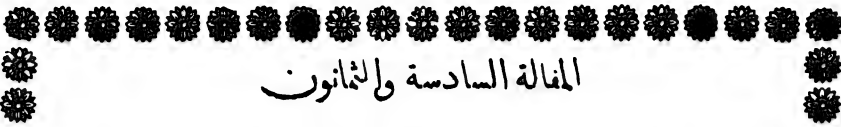 المقالة السادسة والثمانون